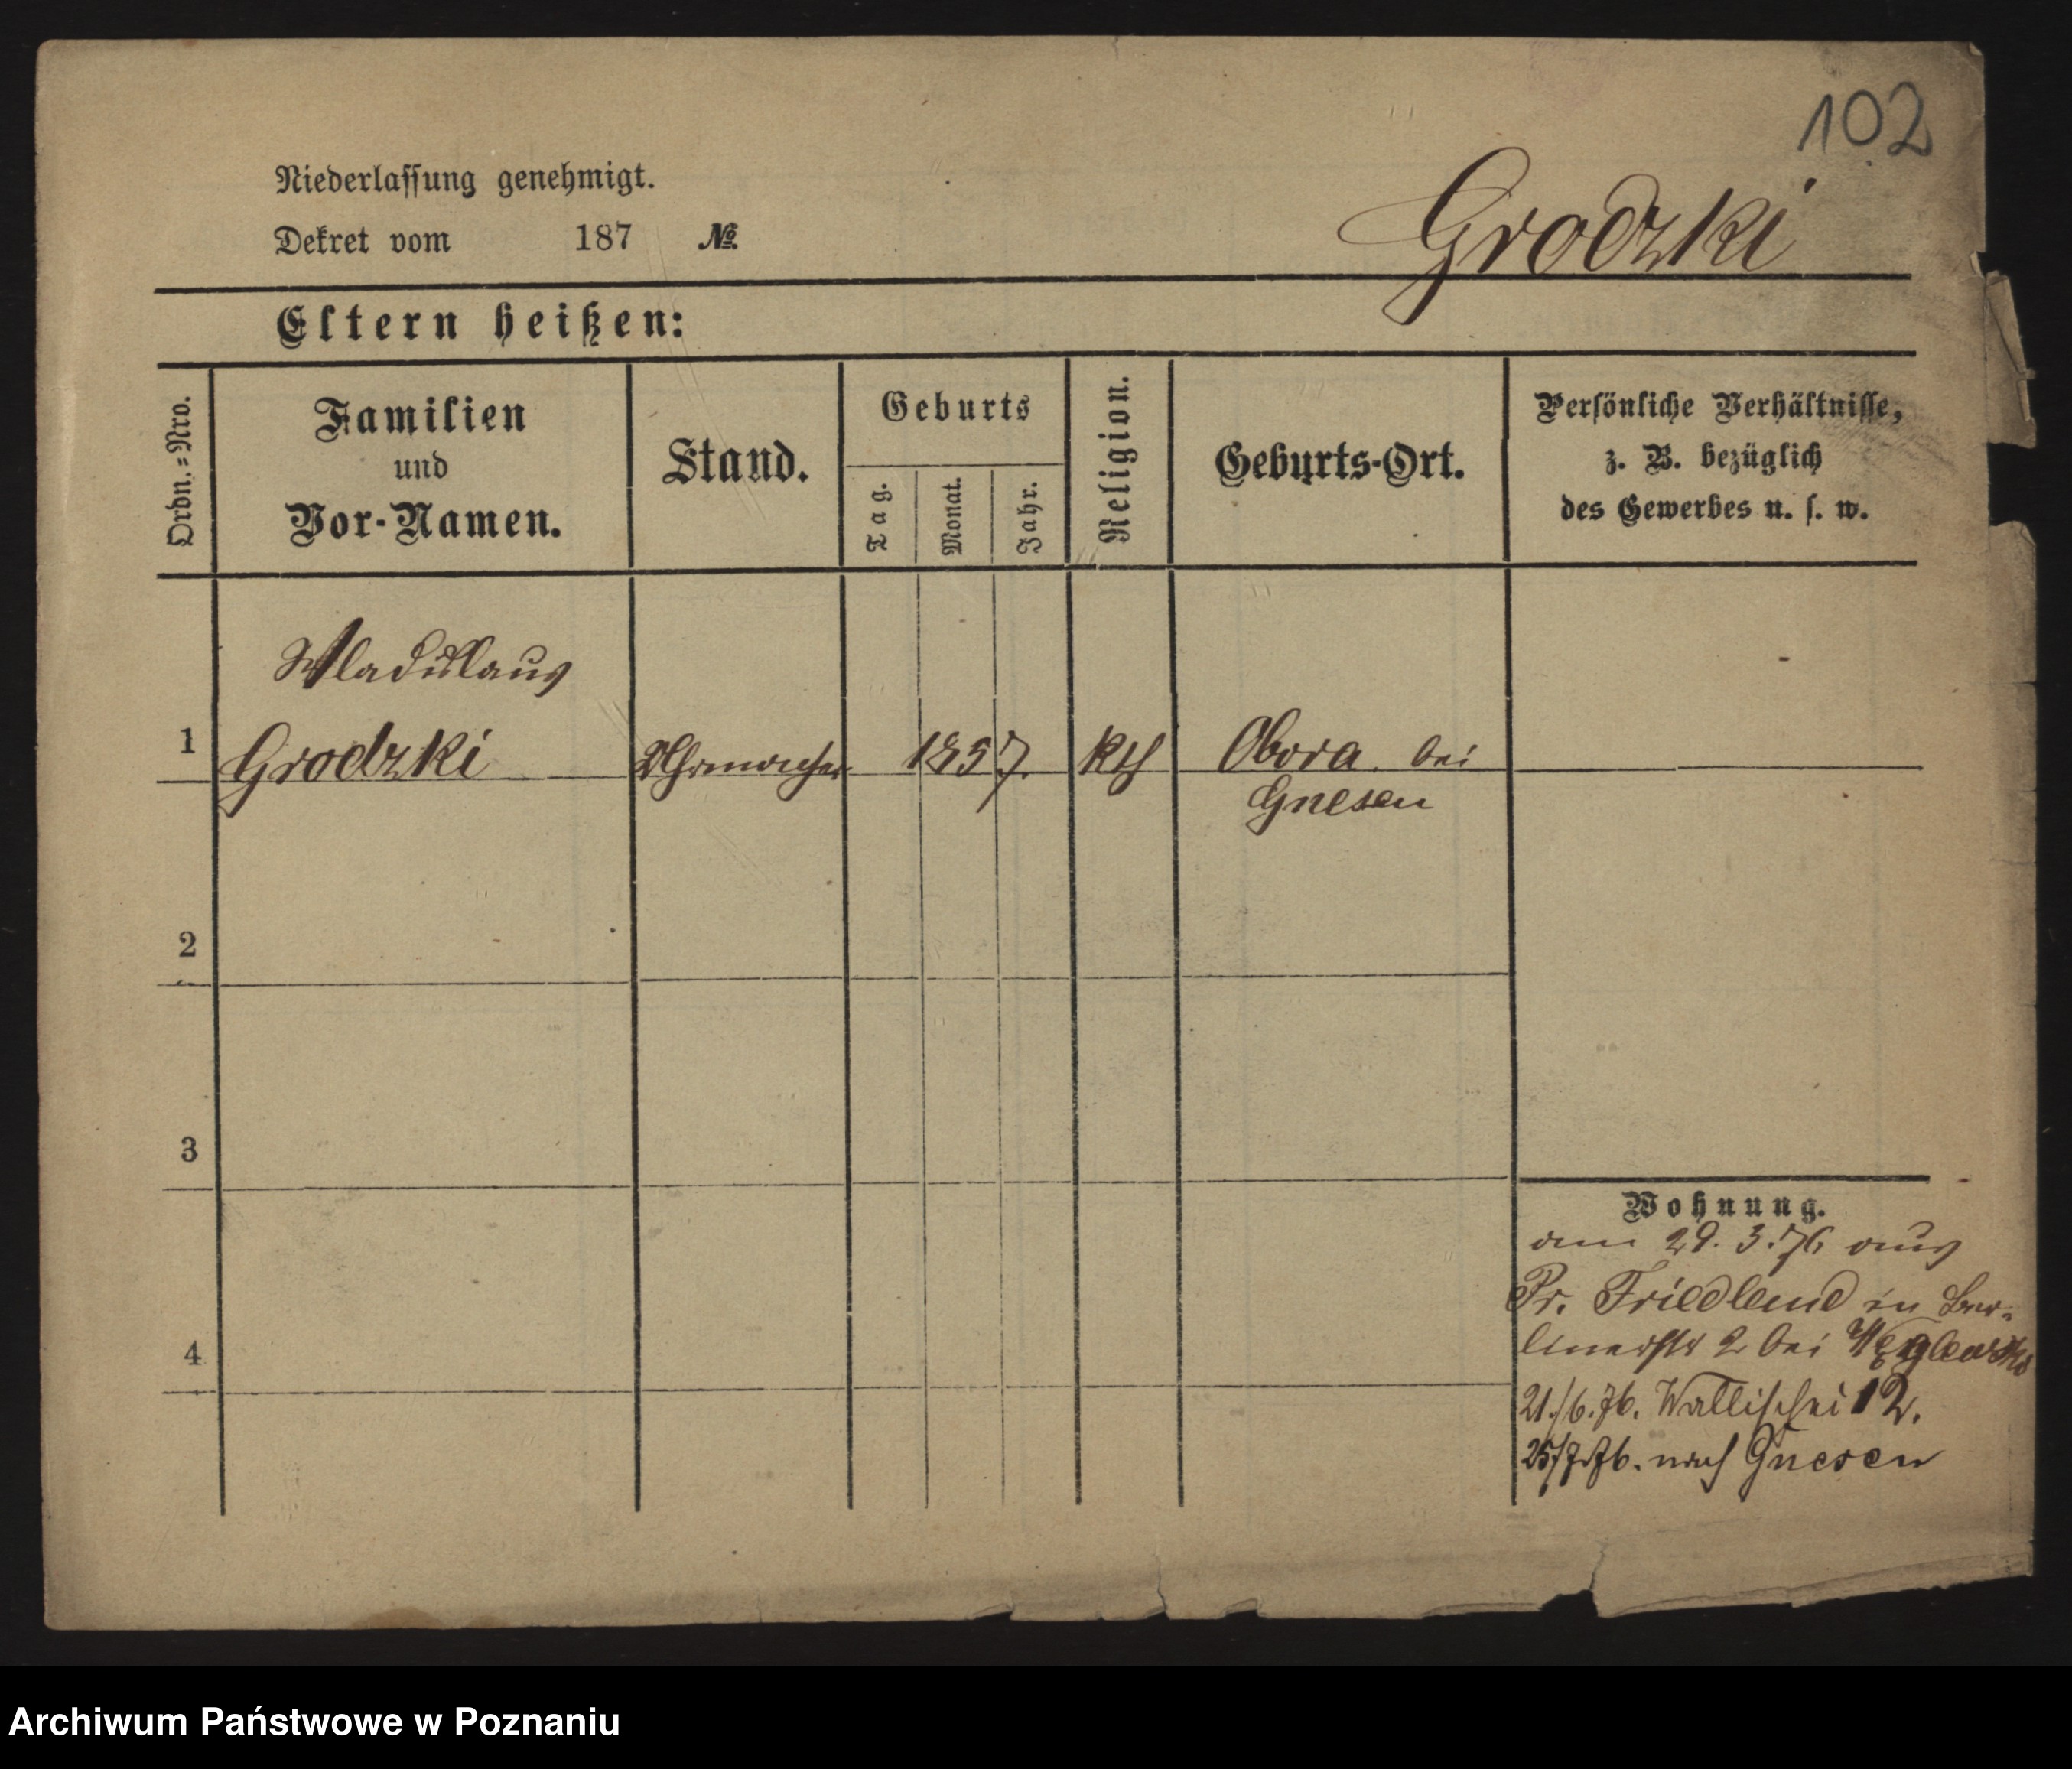 102
Niederlassung genehmigt.
Dekret vom 187 №
Grodzki
Eltern heißen:
Ordn.=Nro.
Familien
und
Vor-Namen.
Stand.
Geburts
Tag.
Monat.
Jahr.
Religion.
Geburts-Ort.
Persönliche Verhältnisse,
z. B. bezüglich
des Gewerbes u. s. w.
Wladislaus
1 Grodzki Uhrmacher 1857. Kth Obora bei
Gnesen
2
3
4
Wohnung.
am 29. 3. 76 aus
Pr. Friedland in Ber-
linerstr 2 bei
21./6.76. Wallischei 12.
25/7.76. nach Gnesen
Archiwum Państwowe w Poznaniu